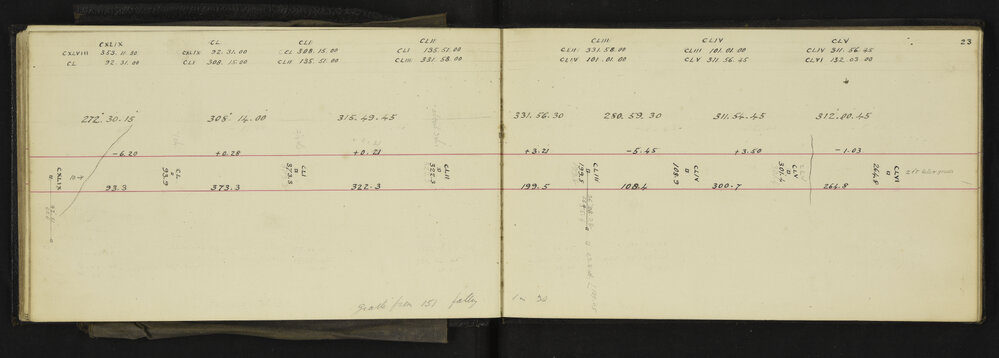 23
CXLIX CL CLI CLII
CXLVIII 353.11.30 CXLIX 92.31.00 CL 308.15.00 CLI 135.51.00
CL 92.31.00 CLI 308.15.00 CLII 135.51.00 CLIII 331.58.00
CLIII CLIV CLV
CLII 331.58.00 CLIII 101.01.00 CLIV 311.56.45
CLIV 101.01.00 CLV 311.56.45 CLVI 132.03.00
272.30.15 308.14.00 315.49.45
331.56.30 280.59.30 311.54.45 312.00.45
-6.20 +0.28 +0.21
+3.21 -5.45 +3.50 -1.03
CXLIX
CL
93.9
CLI
373.3
CLII
322.3
CLIII
199.5
CLIV
108.9
CLV
301.4
CLVI
264.8
93.3 373.3 322.3
199.5 108.4 300.7 264.8
grade from 151 falling 1 in 30